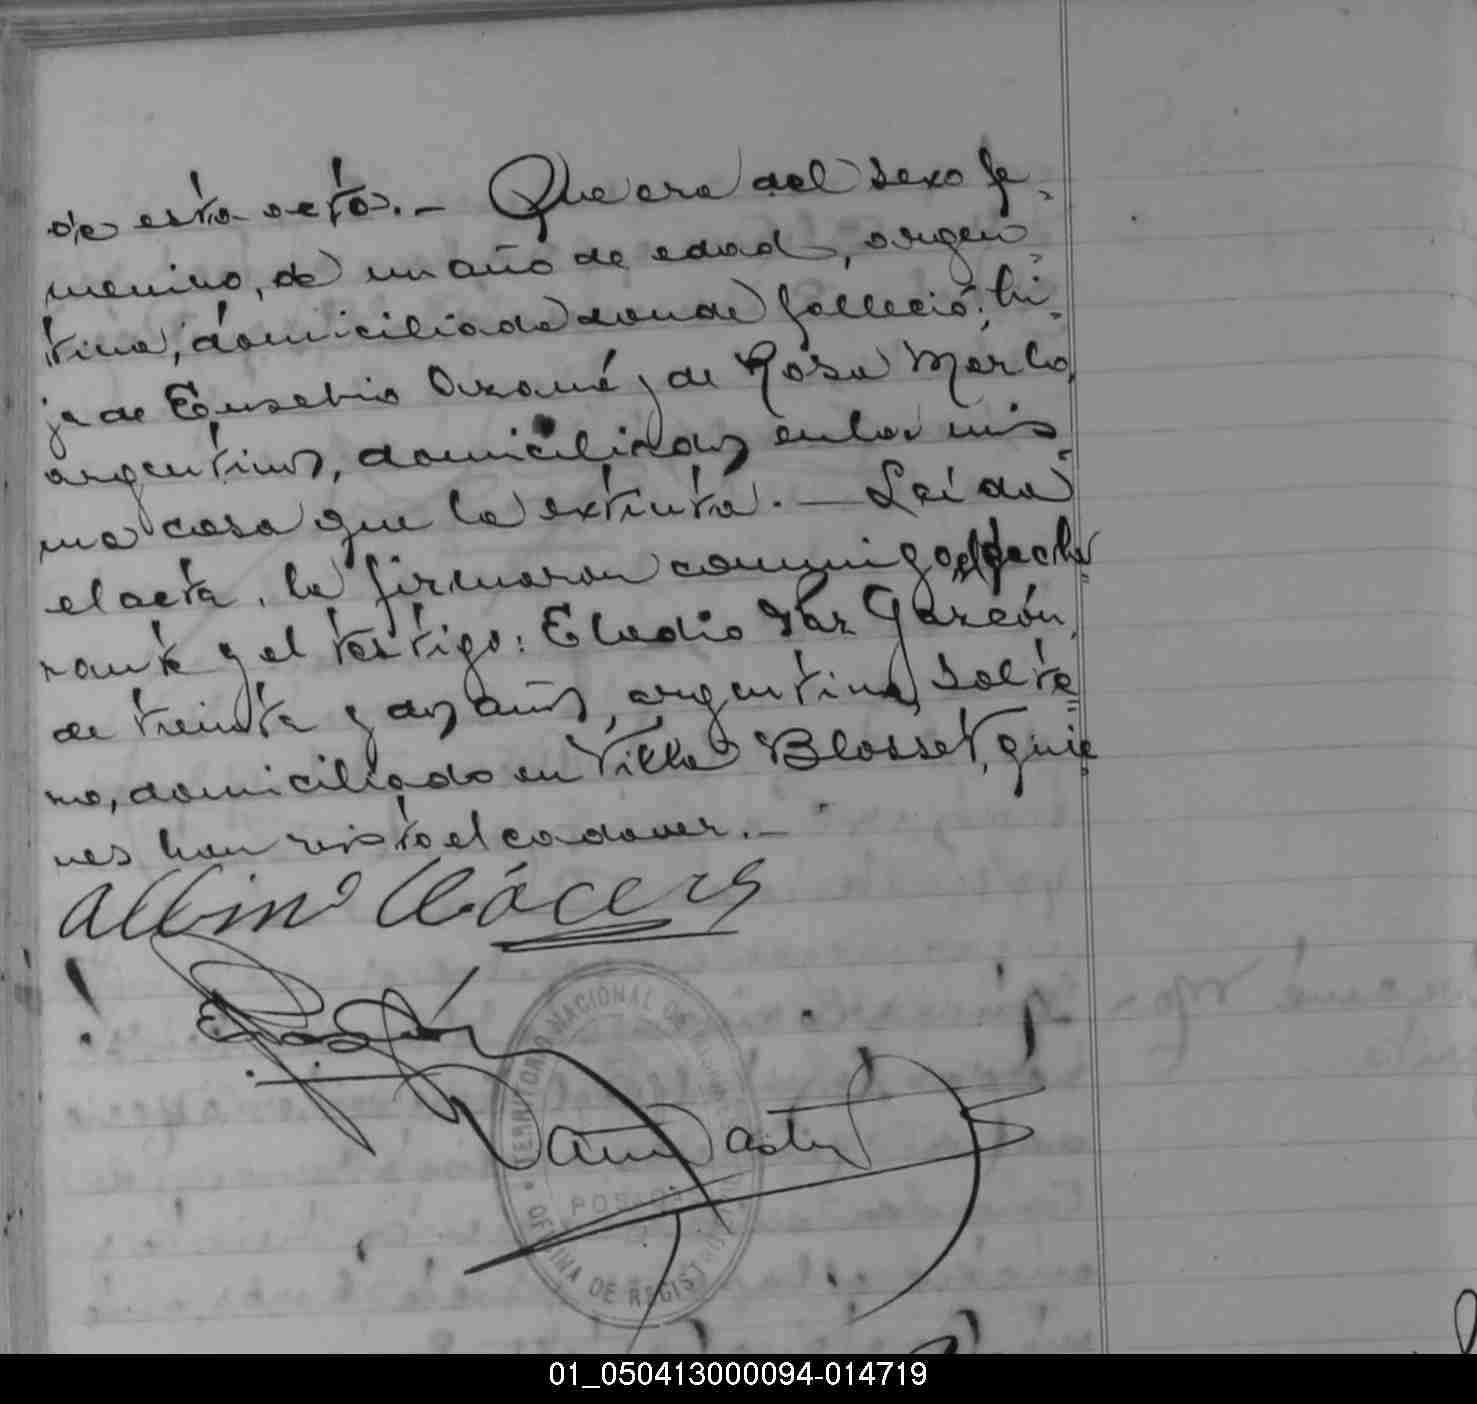 de esta acta.— Que era del sexo fe-
menino, de un año de edad, argen-
tina, domiciliada donde falleció; hi-
ja de Eusebio y de Rosa Merlo,
argentinos, domiciliados en la mis-
ma casa que la extinta.— Leída
el acta, la firmaron conmigo el decla-
rante y el testigo: Eladio Garzón,
de treinta y dos años, argentino, solte-
ro, domiciliado en Villa Blosset, quie-
nes han visto el cadaver.—
Albino
TERRITORIO NACIONAL DE
POSADAS
OFICINA DE REGISTRO
01_050413000094-014719